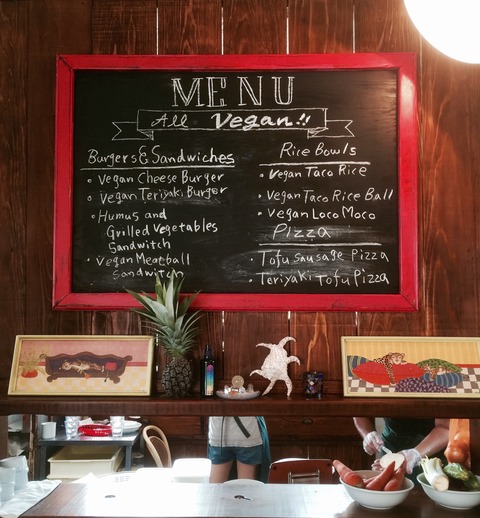 MENU
All Vegan!!
Burgers & Sandwiches
• Vegan Cheese Burger
• Vegan Teriyaki Burger
• Humus and
Grilled Vegetables
Sandwitch
• Vegan Meatball
Sandwitch
Rice Bowls
• Vegan Taco Rice
• Vegan Taco Rice Ball
• Vegan Loco Moco
Pizza
• Tofu sausage Pizza
• Teriyaki Tofu Pizza